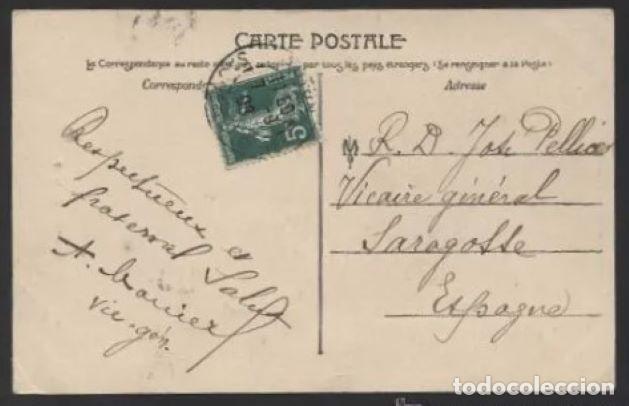 CARTE POSTALE
La Correspondance au recto n'est pas acceptée par tous les pays étrangers (Se renseigner à la Poste)
Correspondance
Adresse
Respectueux et
fraternel Salut
vic. gén.
R. D. José Pellicer
Vicaire général
Saragosse
Espagne
5
todocoleccion